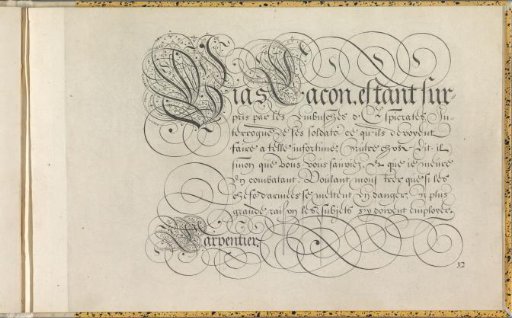 Bias Lacon, estant sur-
pris par les Embusches d'Iphicrates, In-
terrogué de ses soldatz ce qu'ils devoyent
faire a telle infortune: Autre chose, Dit-il
sinon que vous vous sauviez, Et que je meure
En combatant. Voulant monstrer que si les
chefz d'armées se mettent En danger, Par plus
grande raison les subjets s'y doivent employer.
Carpentier.
12